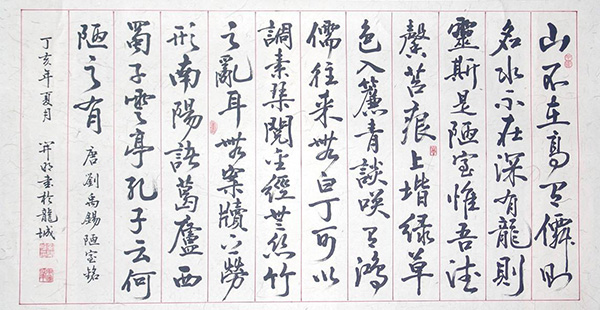 山不在高有僊則
名水不在深有龍則
靈斯是陋室惟吾德
馨苔痕上堦綠草
色入簾青談咲有鴻
儒往來無白丁可以
調素琴閱金經無絲竹
之亂耳無案牘之勞
形南陽諸葛廬西
蜀子雲亭孔子云何
陋之有
唐劉禹錫陋室銘
丁亥年夏月 書於龍城